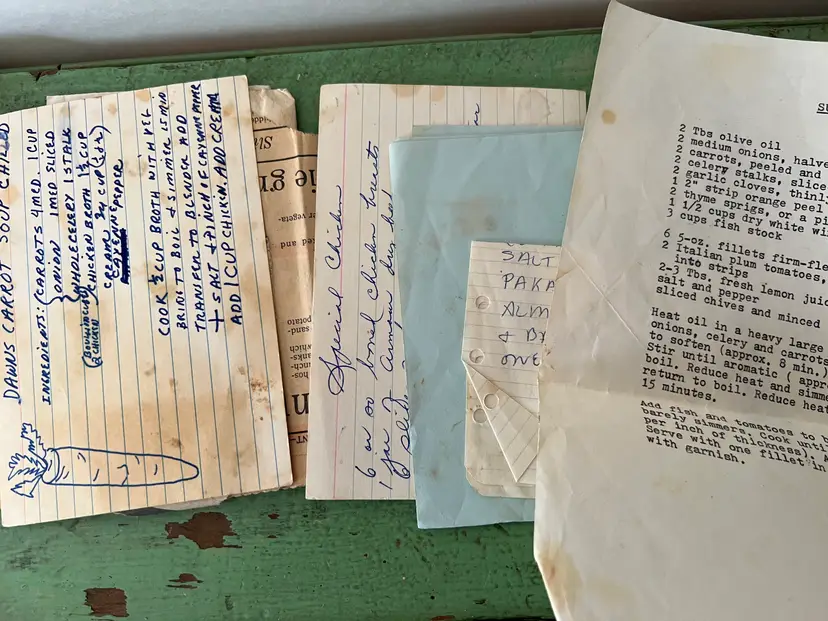 DAWNS CARROT SOUP CHILLED
INGREDIENTS: CARROTS 4 MED. 1 CUP
ONION 1 MED SLICED
WHOLE CELERY 1 STALK
CHICKEN BROTH 1 1/2 CUP
(BOUILLON CUBE
CHICKEN)
CREAM 3/4 CUP
CAYENNE PEPPER
COOK 1/2 CUP BROTH WITH VEG
BRING TO BOIL + SIMMER 15 MIN
TRANSFER TO BLENDER ADD
+ SALT + PINCH OF CAYENNE
ADD 1 CUP CHICKEN. ADD CREAM
ie gr
and
potato
sand-
which
Special Chicken
6 or so boned chicken breasts
1 jar
SALT
PAKA
ALM
ONE
2 Tbs olive oil
2 medium onions, halve
2 carrots, peeled and
2 celery stalks, slice
2 garlic cloves, thinl
1 2" strip orange peel
2 thyme sprigs, or a pi
1 1/2 cups dry white wi
3 cups fish stock
6 5-oz. fillets firm-fle
2 Italian plum tomatoes,
into strips
2-3 Tbs. fresh lemon juic
salt and pepper
sliced chives and minced
Heat oil in a heavy large
onions, celery and carrots
to soften (approx. 8 min.)
Stir until aromatic ( appro
boil. Reduce heat and simme
return to boil. Reduce heat
15 minutes.
Add fish and tomatoes to b
barely simmers. Cook until
per inch of thickness). A
Serve with one fillet in
with garnish.